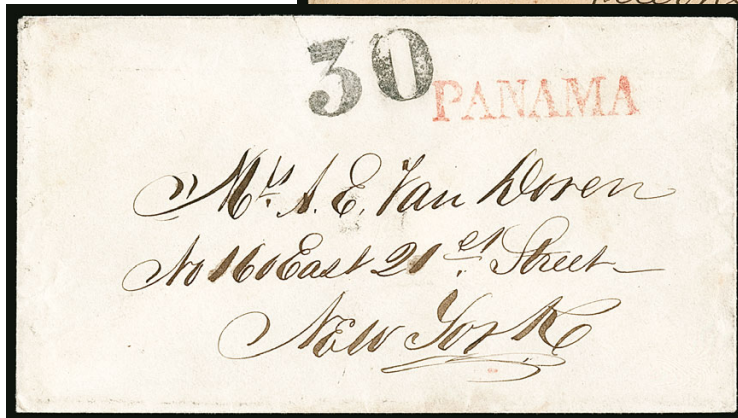 30
PANAMA
Mrs. A. E. Van Doren
No 160 East 21st Street
New York